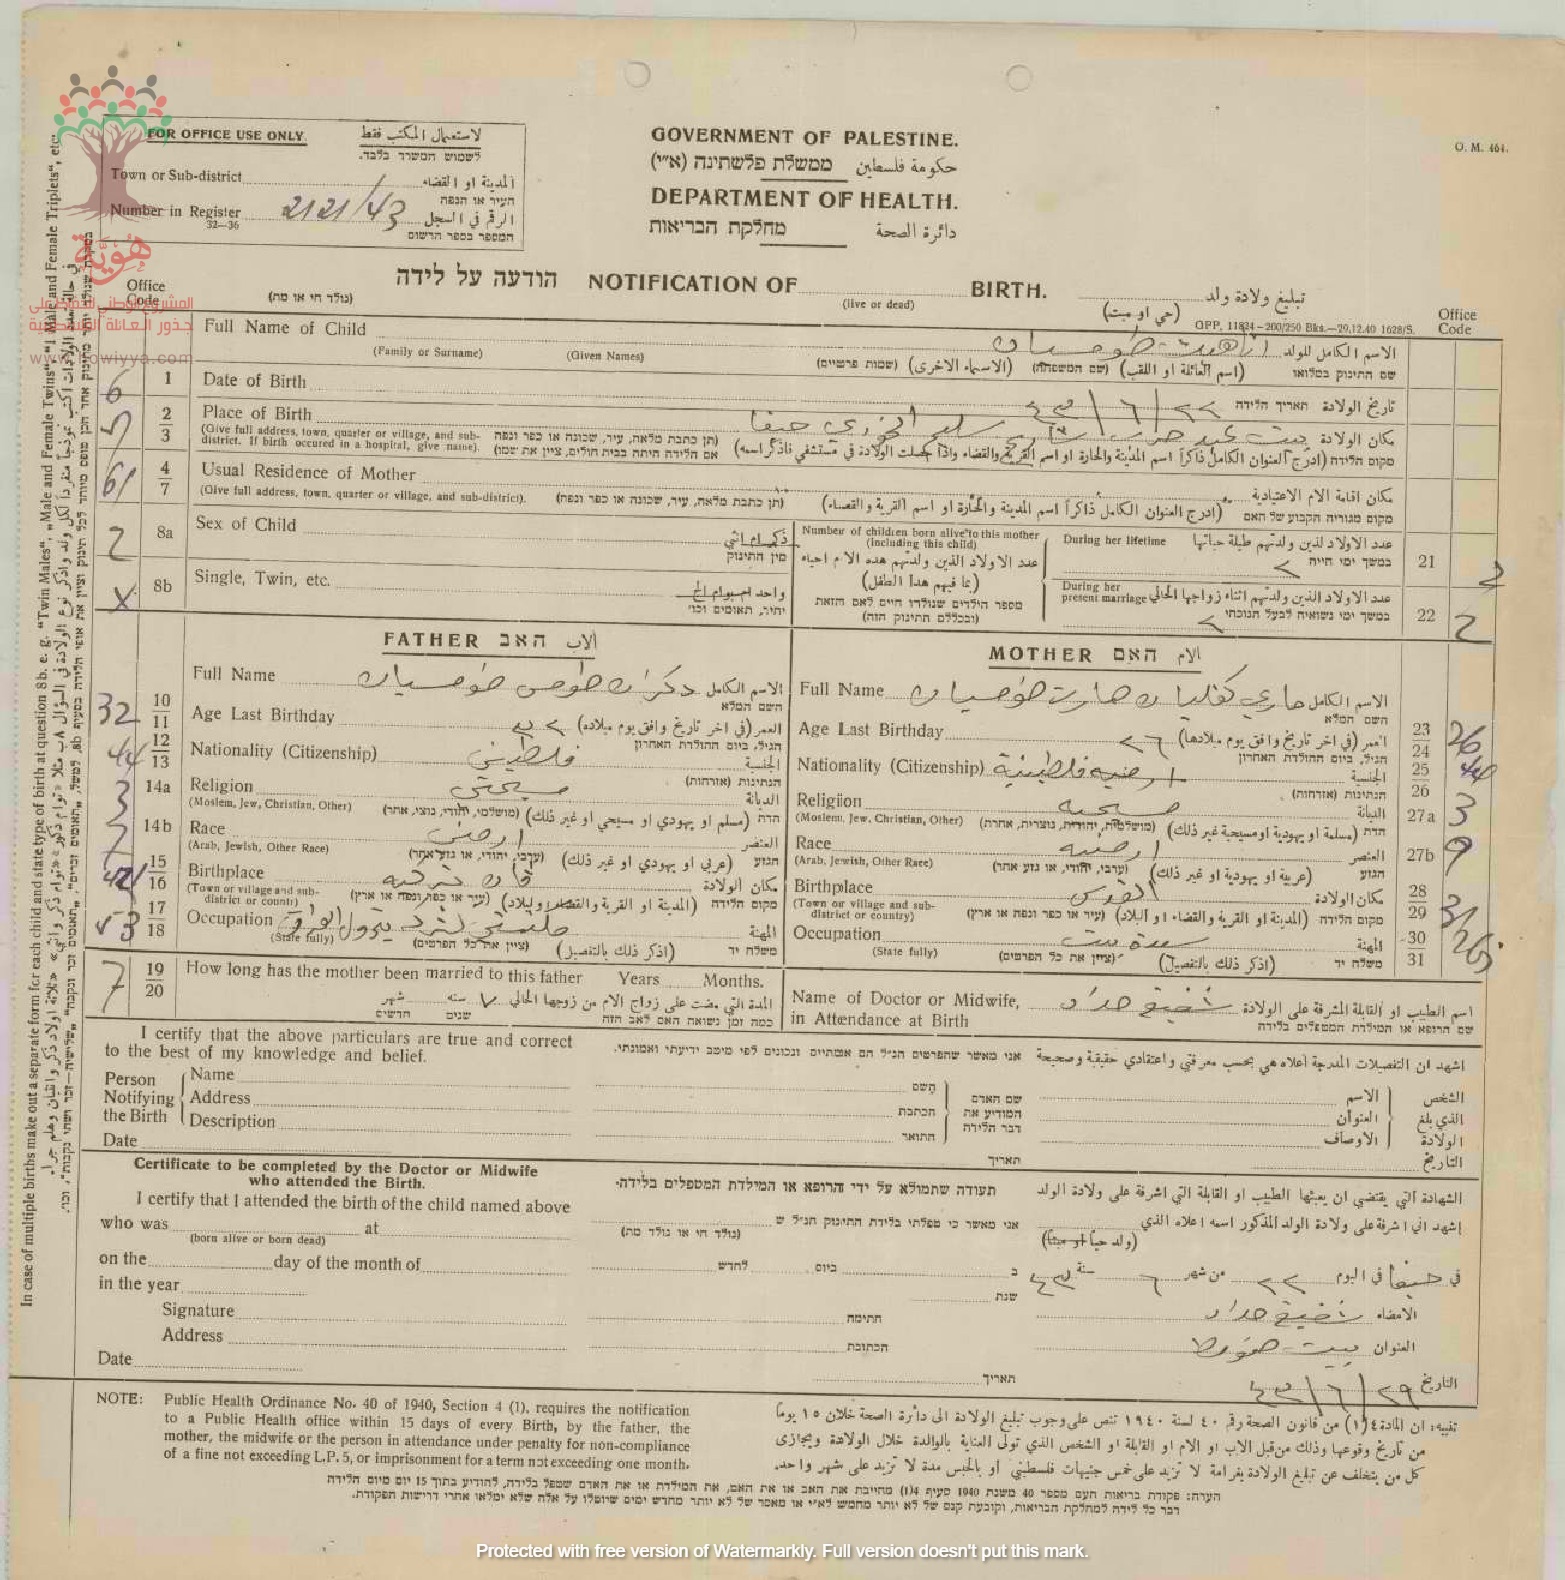 FOR OFFICE USE ONLY.
لاستعمال المكتب فقط
לשמוש המשרד בלבד.
Town or Sub-district
المدينة او القضاء
העיר או הנפה
Number in Register 2121/43 الرقم في السجل
32—36
המספר בספר הרשום
GOVERNMENT OF PALESTINE.
ממשלת פלשתינה (א״י) حكومة فلسطين
DEPARTMENT OF HEALTH.
מחלקת הבריאות دائرة الصحة
O. M. 464.
هُوِيَّة
المشروع الوطني للحفاظ على
جذور العائلة الفلسطينية
הודעה על לידה NOTIFICATION OF BIRTH. تبليغ ولادة ولد
(נולד חי או מת) (live or dead) (حي او ميت)
GPP, 11834—200/250 Bks.—29.12.40 1628/S.
Office Code
Office Code
Full Name of Child الاسم الكامل للولد
(Family or Surname) (Given Names) (שמות פרטיים) (الاسماء الاخرى) (שם המשפחה) (اسم العائلة او اللقب) שם התינוק במלואו
6 1 Date of Birth ٢٢/٦/٤٣ تاريخ الولادة תאריך הלידה
2 3 Place of Birth مكان الولادة
(Give full address, town, quarter or village, and sub-district. If birth occured in a hospital, give name).
(תן כתבת מלאה, עיר, שכונה או כפר ונפה אם הלידה היתה בבית חולים, ציין את שמו)
מקום הלידה (ادرج العنوان الكامل ذاكراً اسم المدينة والحارة او اسم القرية والقضاء واذا حصلت الولادة في مستشفى فاذكر اسمه)
61 4 7 Usual Residence of Mother مكان اقامة الام الاعتيادية
(Give full address, town, quarter or village, and sub-district). (תן כתבת מלאה, עיר, שכונה או כפר ונפה) (ادرج العنوان الكامل ذاكراً اسم المدينة والحارة او اسم القرية والقضاء) מקום מגוריה הקבוע של האם
2 8a Sex of Child ذكر ام انثى
מין התינוק
X 8b Single, Twin, etc. واحد ام توام الخ
יחיד, תאומים וכו׳
Number of children born alive to this mother (including this child)
عدد الاولاد الذين ولدتهم هذه الام احياء
(بما فيهم هذا الطفل)
מספר הילדים שנולדו חיים לאם הזאת
(ובכללם התינוק הזה)
During her lifetime عدد الاولاد الذين ولدتهم طيلة حياتها
במשך ימי חייה ٢ 21 2
During her present marriage عدد الاولاد الذين ولدتهم اثناء زواجها الحالي
במשך ימי נשואיה לבעל הנוכחי ٢ 22 2
FATHER האב الاب
32 10 11 Full Name الاسم الكامل
השם המלא
Age Last Birthday العمر (في اخر تاريخ وافق يوم ميلاده)
הגיל, ביום ההולדת האחרון
44 12 13 Nationality (Citizenship) فلسطيني الجنسية
הנתינות (אזרחות)
3 14a Religion مسيحي الديانة
(Moslem, Jew, Christian, Other) (מושלמי, יהודי, נוצרי, אחר) (مسلم او يهودي او مسيحي او غير ذلك) הדת
7 14b Race ارمني العنصر
(Arab, Jewish, Other Race) (ערבי, יהודי, או גזע אחר) (عربي او يهودي او غير ذلك) הגזע
15 16 Birthplace مكان الولادة
(Town or village and sub-district or country) (עיר או כפר ונפה או ארץ) (المدينة او القرية والقضاء او البلاد) מקום הלידה
53 17 18 Occupation المهنة
(State fully) (ציין את כל הפרטים) (اذكر ذلك بالتفصيل) משלח יד
7 19 20 How long has the mother been married to this father Years Months.
المدة التي مضت على زواج الام من زوجها الحالي ٧ سنت شهر
כמה זמן נשואה האם לאב הזה שנים חדשים
MOTHER האם الام
Full Name الاسم الكامل
השם המלא
Age Last Birthday ٢٦ العمر (في اخر تاريخ وافق يوم ميلادها) 23 24 26
הגיל, ביום ההולדת האחרון
Nationality (Citizenship) ارمنيه فلسطينية الجنسية 25 26 44
הנתינות (אזרחות)
Religiion مسيحيه الديانة 27a 3
(Moslem, Jew, Christian, Other) (מושלמית, יהודית, נוצרית, אחרת) (مسلمة او يهودية او مسيحية او غير ذلك) הדת
Race ارمنيه العنصر 27b 9
(Arab, Jewish, Other Race) (ערבי, יהודי, או גזע אחר) (عربية او يهودية او غير ذلك) הגזע
Birthplace القدس مكان الولادة 28 29 31
(Town or village and sub-district or country) (עיר או כפר ונפה או ארץ) (المدينة او القرية والقضاء او البلاد) מקום הלידה
Occupation ست بيت المهنة 30 31
(State fully) (ציין את כל הפרטים) (اذكر ذلك بالتفصيل) משלח יד
Name of Doctor or Midwife, شفيقة حداد اسم الطبيب او القابلة المشرفة على الولادة
in Attendance at Birth שם הרופא או המילדת המטפלים בלידה
I certify that the above particulars are true and correct
to the best of my knowledge and belief.
אני מאשר שהפרטים הנ״ל הם אמתיים ונכונים לפי מיטב ידיעתי ואמונתי.
اشهد ان التفصيلات المدرجة اعلاه هي بحسب معرفتي واعتقادي حقيقية وصحيحة
Person Notifying the Birth
Name השם الاسم
Address הכתבת العنوان
Description התואר الاوصاف
שם האדם המודיע את דבר הלידה
الشخص الذي بلغ الولادة
Date תאריך التاريخ
Certificate to be completed by the Doctor or Midwife
who attended the Birth.
תעודה שתמולא על ידי הרופא או המילדת המטפלים בלידה.
الشهادة التي يقتضي ان يعبئها الطبيب او القابلة التي اشرفت على ولادة الولد
I certify that I attended the birth of the child named above
who was at
(born alive or born dead)
אני מאשר כי טפלתי בלידת התינוק הנ״ל ש
(נולד חי או נולד מת)
اشهد اني اشرفت على ولادة الولد المذكور اسمه اعلاه الذي
(ولد حياً او ميتاً)
on the day of the month of לחדש ביום ב
في حيفا في اليوم ٢٢ من شهر ٦ سنة ٤٣
in the year שנת
Signature חתימה شفيقة حداد الامضاء
Address הכתובת العنوان
Date תאריך ٢٩/٦/٤٣ التاريخ
NOTE: Public Health Ordinance No. 40 of 1940, Section 4 (1), requires the notification
to a Public Health office within 15 days of every Birth, by the father, the
mother, the midwife or the person in attendance under penalty for non-compliance
of a fine not exceeding L.P. 5, or imprisonment for a term not exceeding one month.
تنبيه: ان المادة ٤(١) من قانون الصحة رقم ٤٠ لسنة ١٩٤٠ تنص على وجوب تبليغ الولادة الى دائرة الصحة خلال ١٥ يوماً
من تاريخ وقوعها وذلك من قبل الاب او الام او القابلة او الشخص الذي تولى العناية بالوالدة خلال الولادة ويجازى
كل من يتخلف عن تبليغ الولادة بغرامة لا تزيد على خمس جنيهات فلسطيني او بالحبس مدة لا تزيد على شهر واحد.
הערה: פקודת בריאות העם מספר 40 משנת 1940 סעיף 4(1) מחייבת את האב או את האם, את המילדת או את האדם שטפל בלידה, להודיע בתוך 15 יום מיום הלידה
דבר כל לידה למחלקת הבריאות, וקובעת קנס של לא יותר מחמש לא״י או מאסר של לא יותר מחדש ימים שיוטלו על אלה שלא ימלאו אחרי דרישות הפקודה.
In case of multiple births make out a separate form for each child and state type of birth at question 8b. e. g. "Twin Males", "Male and Female Twins", "1 Male and Female Triplets", etc.
Protected with free version of Watermarkly. Full version doesn't put this mark.